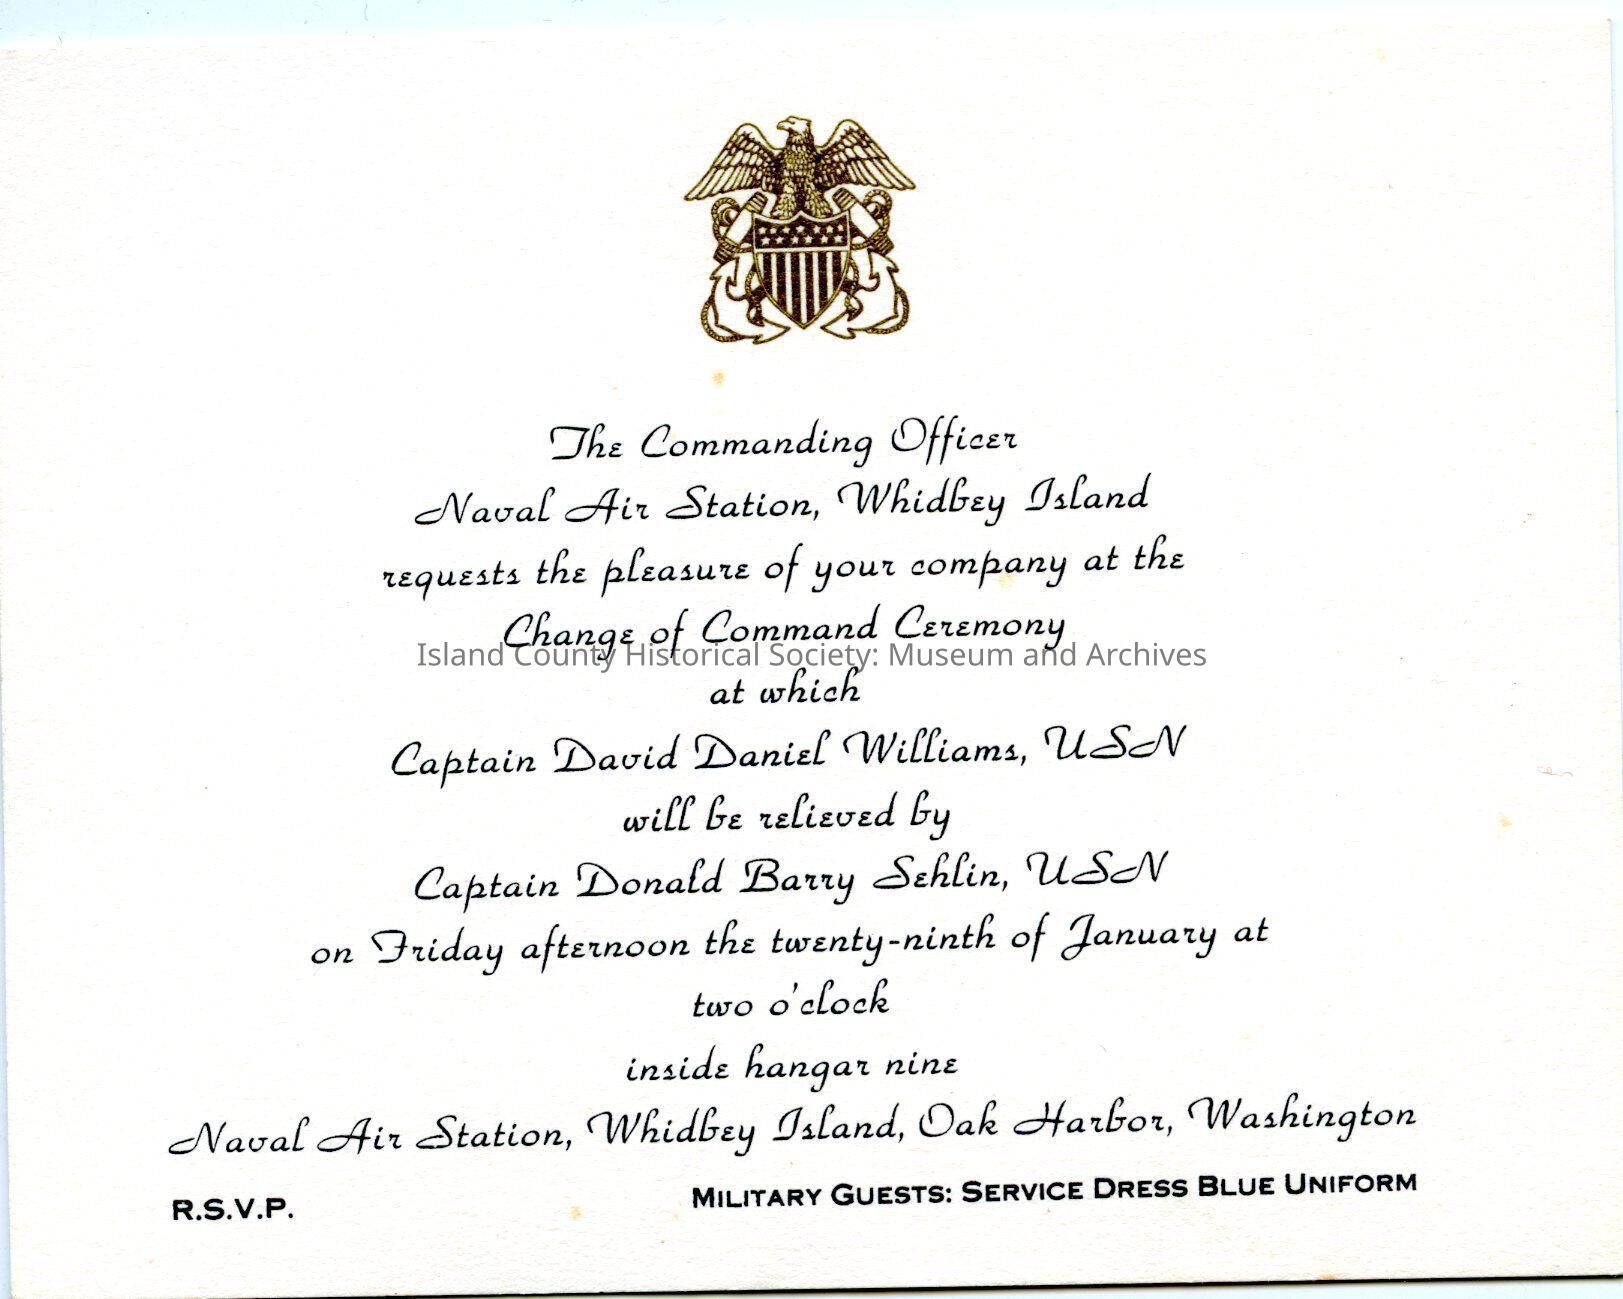 The Commanding Officer
Naval Air Station, Whidbey Island
requests the pleasure of your company at the
Change of Command Ceremony
Island County Historical Society: Museum and Archives
at which
Captain David Daniel Williams, USN
will be relieved by
Captain Donald Barry Sehlin, USN
on Friday afternoon the twenty-ninth of January at
two o'clock
inside hangar nine
Naval Air Station, Whidbey Island, Oak Harbor, Washington
R.S.V.P. MILITARY GUESTS: SERVICE DRESS BLUE UNIFORM